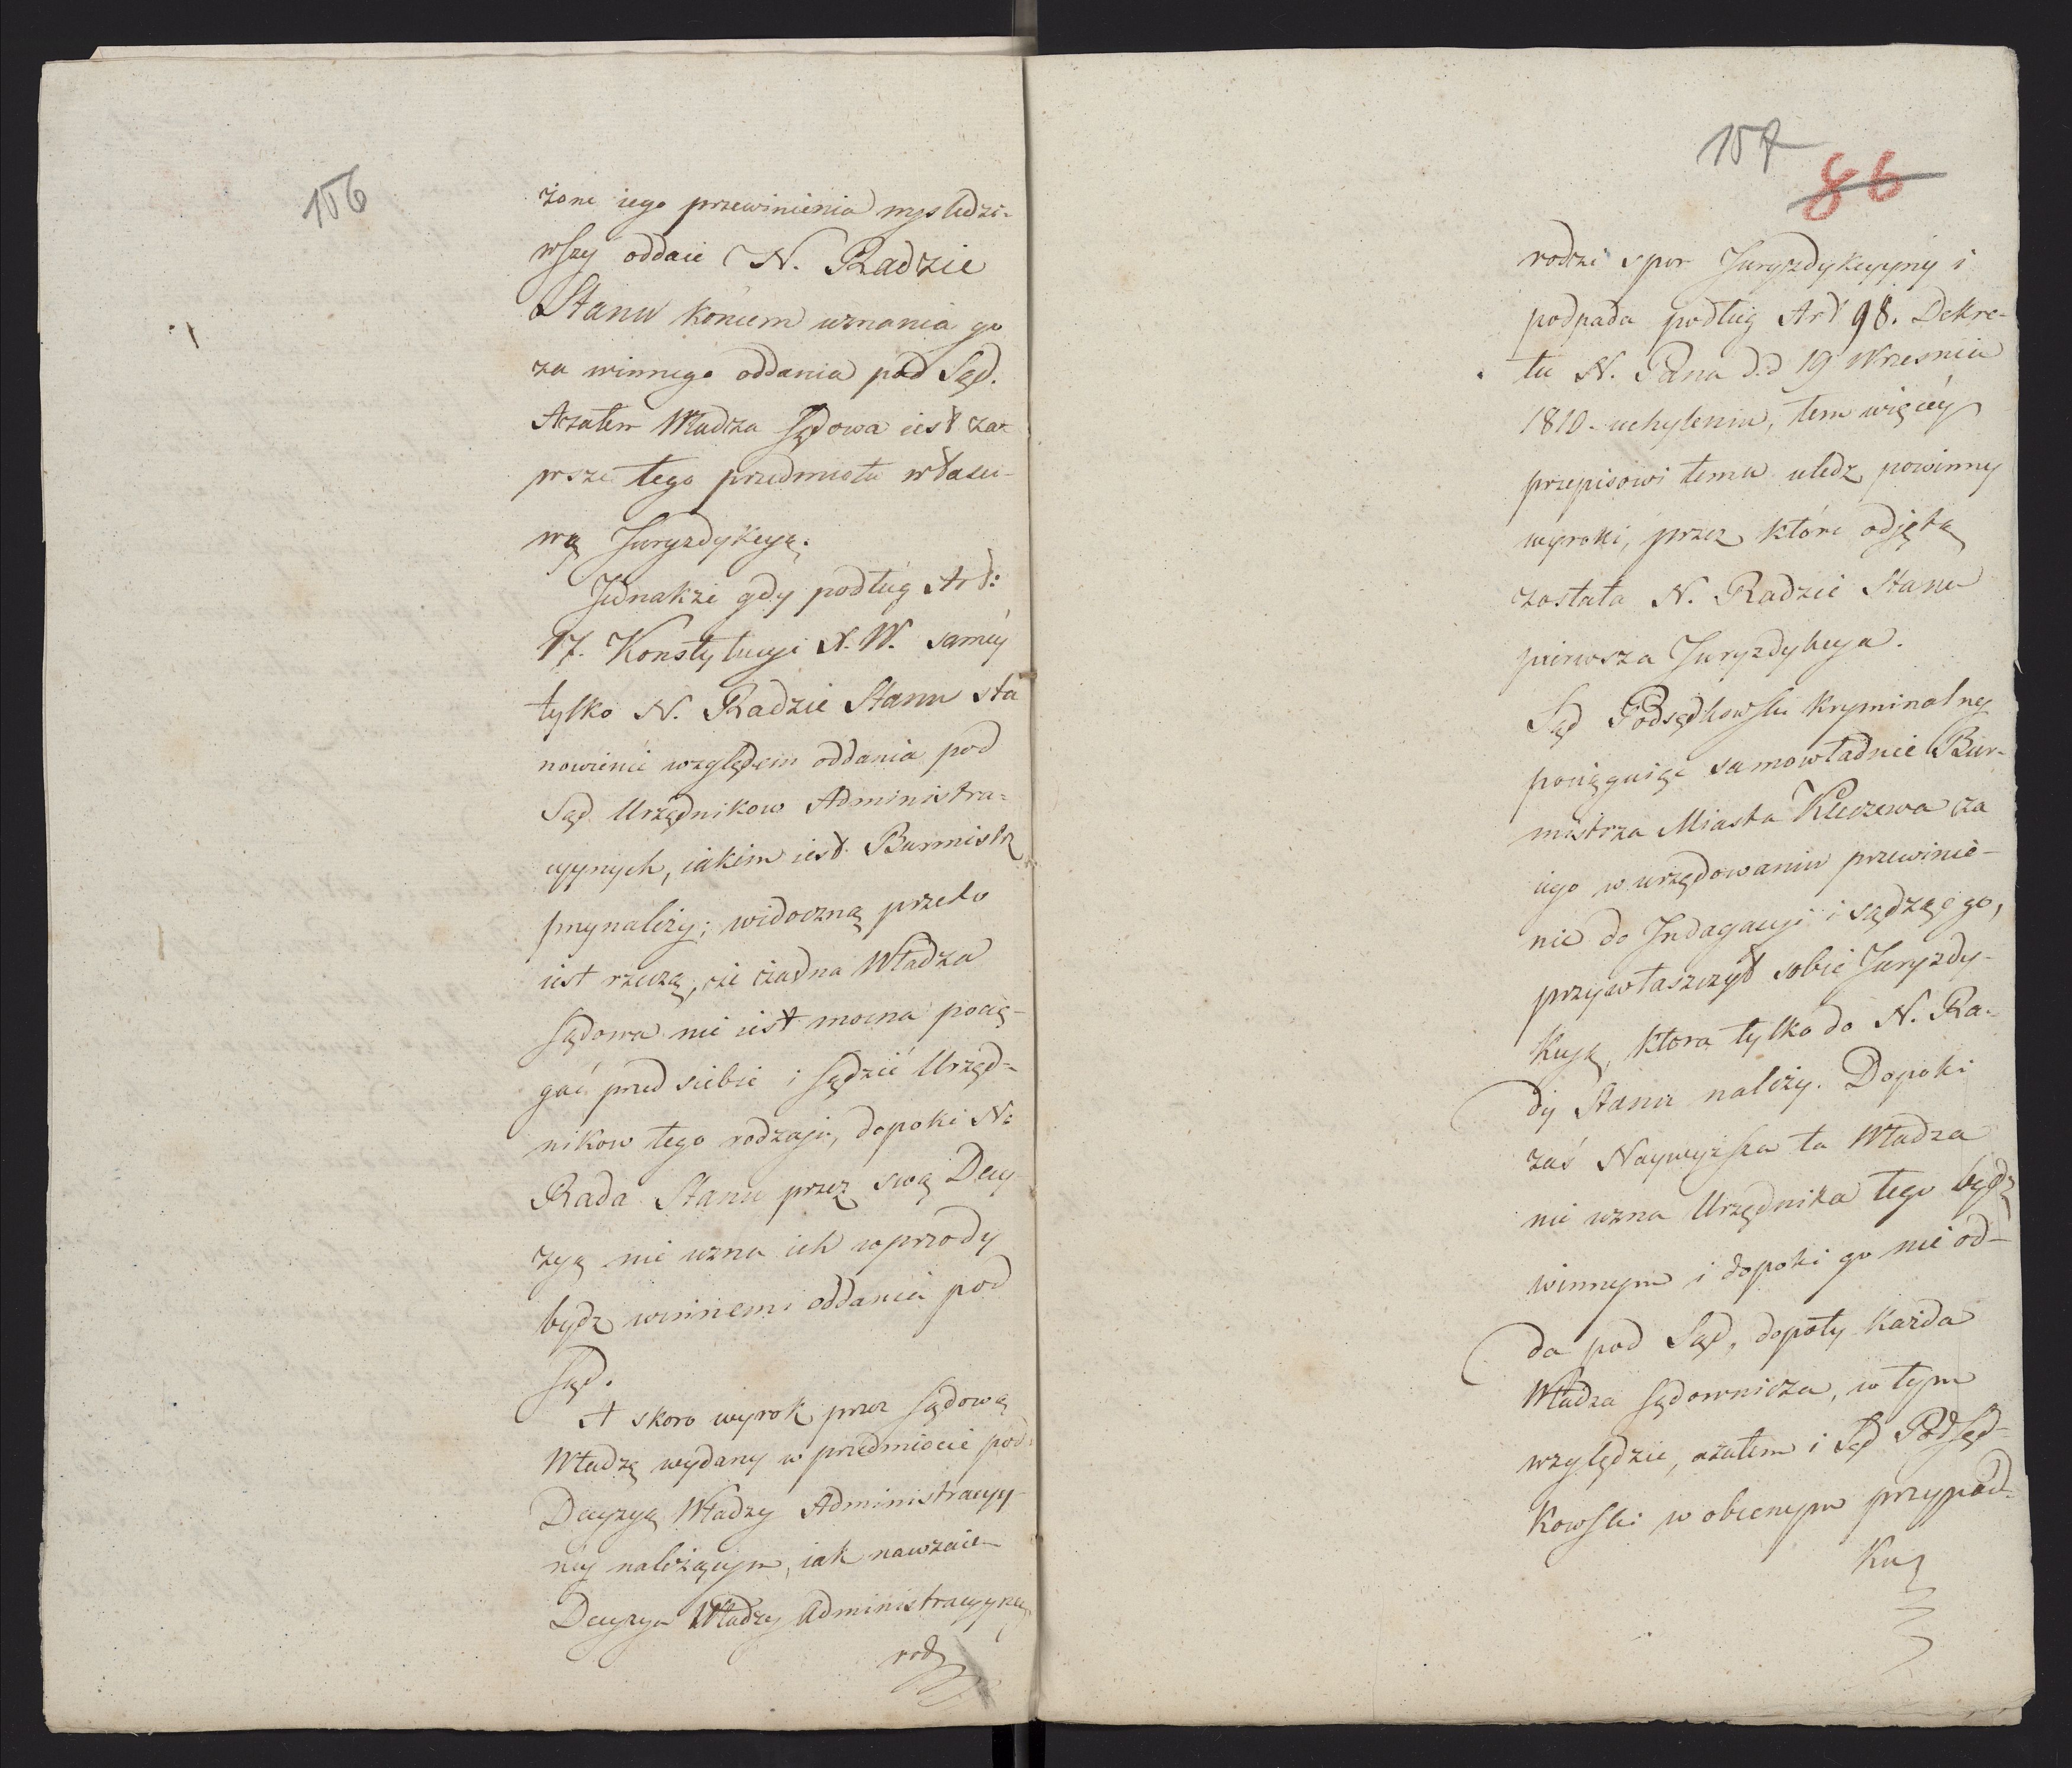 156
żone iego przewinienia wyśledzi-
wszy oddaie N. Radzie
Stanu końcem uznania go
za winnego oddania pod Sąd.
Azatem Władza Sądowa iest za-
wsze tego przedmiotu właści-
wą Juryzdykcyą.
Jednakże gdy podług Art:
17. Konstytucyi X. W. saméy
tylko N. Radzie Stanu sta
nowienie względem oddania pod
Sąd Urzędnikow Administra-
cyynych, iakim iest Burmistrz
przynależy; widoczną przeto
iest rzeczą, że żadna Władza
Sądowa nie iest mocna pocią-
gać przed siebie i sądzić Urzęd-
nikow tego rodzaju, dopoki N:
Rada Stanu przez swą Decy
zyą nie uzna ich wprzody
bydz winnemi oddania pod
Sąd.
A skoro wyrok przez Sądową
Władzę wydany w przedmiocie pod
Decyzyą Władzy Administracyy-
néy należącym, iak nawzaiem
Decyzya Władzy Administracyyney
rodz
157
86
rodzi spor Juryzdykcyyny i
podpada podług Art 98. Dekre-
tu N. Pana d.d 19 Wrzesnia
1810 - uchyleniu, tem więcéy
przepisowi temu uledz powinny
wyroki, przez które odjętą
została N. Radzie Stanu
pierwsza Juryzdykcya.
Sąd Podsędkowski Kryminalny
pociągaiąc samowładnie Bur-
mistrza Miasta Kleczewa za
iego w urzędowaniu przewinie-
nie do Indagacyi i sądząc go,
przywłaszczył sobie Juryzdy-
kcyą, ktora tylko do N. Ra-
dy Stanu należy. Dopoki
zaś Naywyższa ta Władza
nie uzna Urzędnika tego bydz
winnym i dopoki go nie od-
da pod Sąd, dopoty każda
Władza Sądownicza, w tym
względzie, azatem i Sąd Podsęd-
kowski w obecnym przypad-
ku